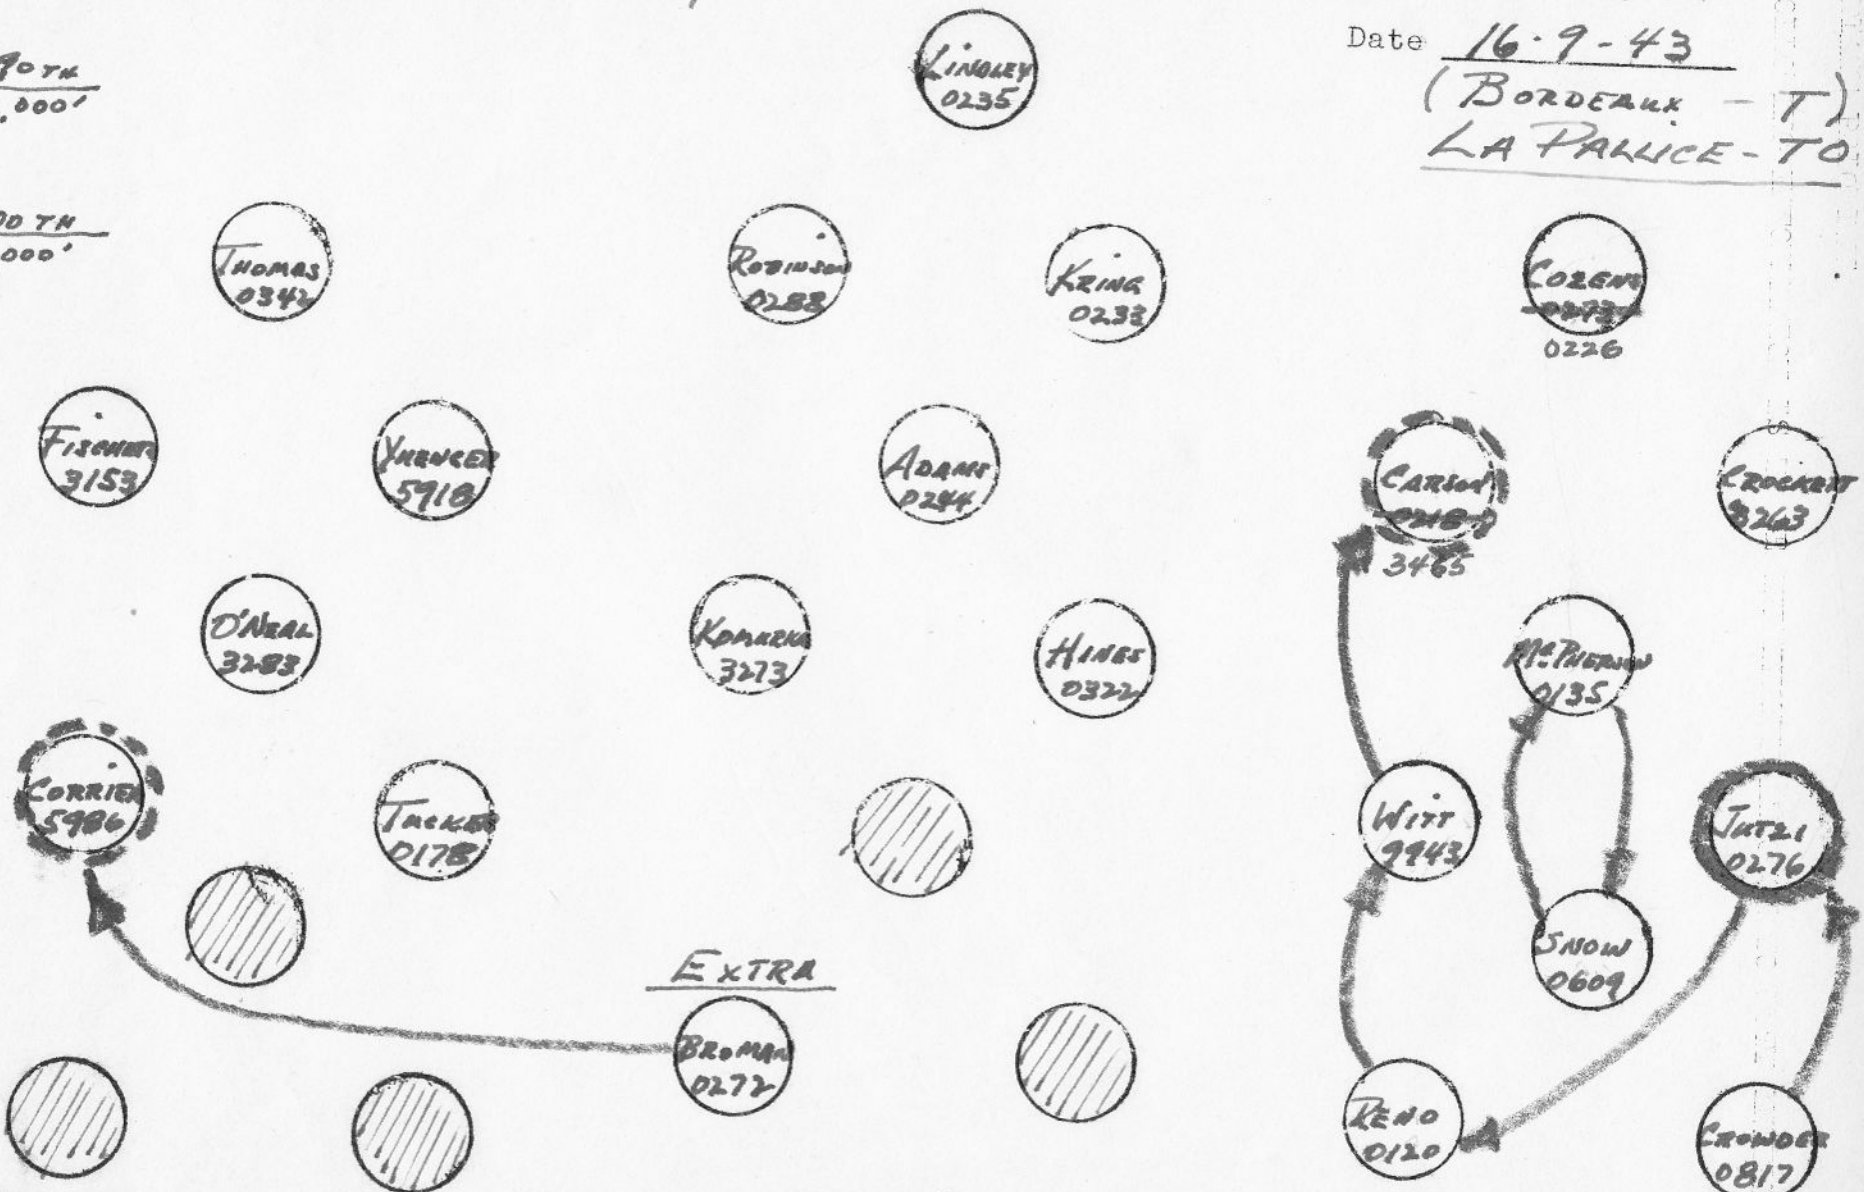 Date 16-9-43
(BORDEAUX - T)
LA PALLICE - TO
90TH
.000'
00 TH
000'
LINDLEY
0235
THOMAS
0342
ROBINSON
0288
KRING
0233
COZENS
0273
0226
FISCHER
3153
YUENGER
5918
ADAMS
0244
CARSON
0218
3465
CROCKETT
3263
O'NEAL
3283
KOMUREK
3273
HINES
0322
McPHERSON
0135
CORRIER
5986
TUCKER
0178
WITT
9943
JUTZI
0276
SNOW
0609
EXTRA
BROMAN
0272
RENO
0120
CROWDER
0817